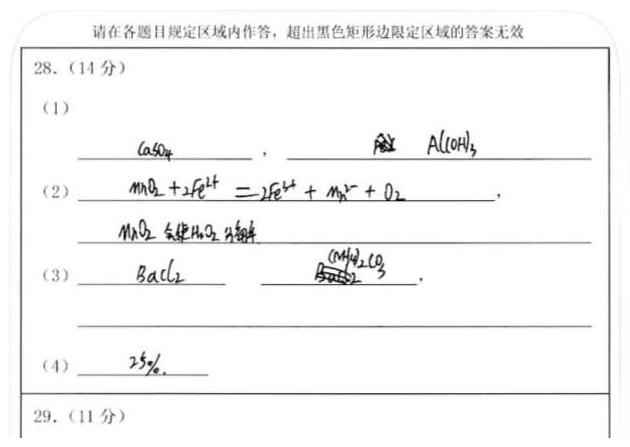 请在各题目规定区域内作答，超出黑色矩形边限定区域的答案无效
28.（14 分）
（1）
CaSO4 ， Al(OH)3
（2） MnO2 + 2Fe2+ = 2Fe3+ + Mn2- + O2 ，
MnO2 会使H2O2 分解
（3） BaCl2 (NH4)2CO3 ，
（4） 25%.
29.（11 分）